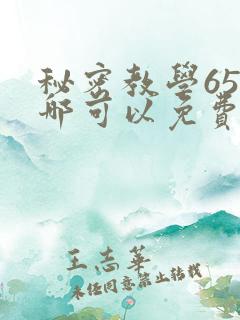 秘密教學65
哪可以免費
王志華
未经同意禁止转载